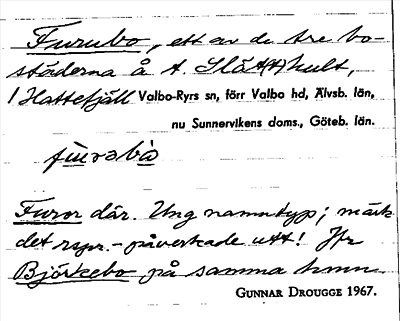 Furubo, ett av de tre bo-
städerna å t. Slätthult,
/ Hattefjäll Valbo-Ryrs sn, förr Valbo hd, Älvsb. län,
nu Sunnervikens doms., Göteb. län.
Furor där. Ung namntyp; märk
det rspr.-påverkade utt! Jfr
Björkebo på samma hmn.
GUNNAR DROUGGE 1967.